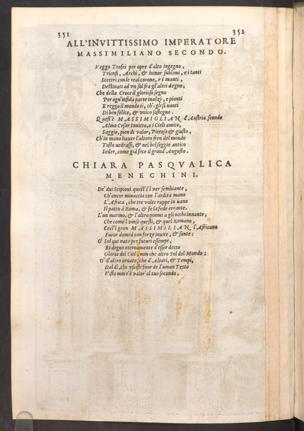 351 352
ALL'INVITTISSIMO IMPERATORE
MASSIMILIANO SECONDO.
Veggo Trofei per opre d'alto ingegno,
Trionfi, Archi, & honor sublimi, e i tanti
Scettri con le real corone, e i manti
Destinati ad un sol fra gli altri degno,
Che della Croce il glorioso segno
Per ogni infida parte inalzi, e pianti
E regga il mondo
Di ben felice, & unico sostegno.
Quest'è MASSIMIGLIAN d'Austria secondo
Alma Cesar Invitto, a i Cieli amico,
Saggio, pien di valor, Pietoso & giusto,
Ch'in mano haver l'altero fren del mondo
Tosto vedrassi, & nel bel seggio antico
Seder, come già fece il grand'Augusto.
CHIARA PASQVALICA
MENECHINI.
De' dui Scipioni quest'è'l ver sembiante,
Ch'ancor minaccia con l'ardita mano
L'Africa, che tre volte ruppe in vano
Il patto à Roma, & fe la fede errante.
L'un marmo, & l'altro pommi a gli occhi innante,
Che come'l vinse questi, & quel Romano,
Così'l gran MASSIMILIAN, l'Africano
Furor domerà con forze invite, & sante:
O Sol qui nato per futuri essempi,
Et degno eternamente d'esser detto
Gloria del Ciel, non che altro Sol del Mondo:
O d'altro ornato, che d'Altari, & Tempi,
Visto non è valor' al tuo secondo.